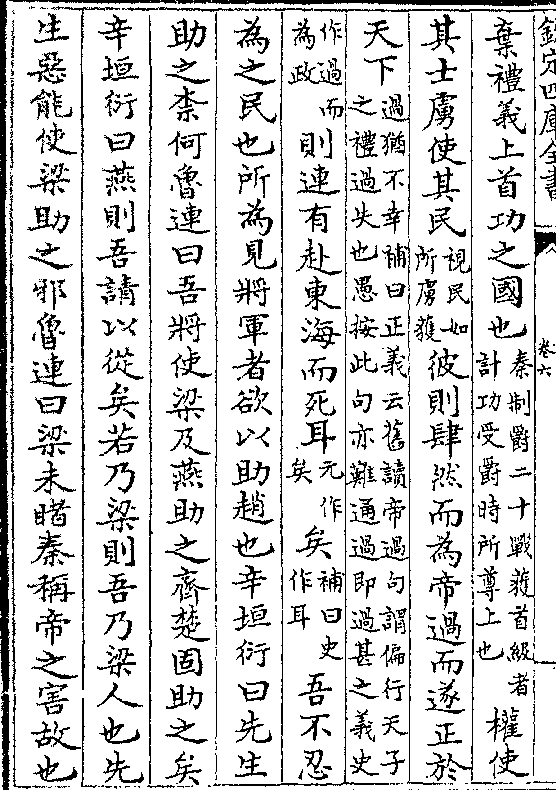 欽定四庫全書
卷六
棄禮義上首功之國也秦制爵二十戰獲首級者計功受爵時所尊上也權使
其士虜使其民視民如所虜獲彼則肆然而為帝過而遂正於
天下過猶不幸補曰正義云舊讀帝過句謂偏行天子之禮過失也愚按此句亦難通過即過甚之義史
作過而為政則連有赴東海而死耳元作矣矣補曰史作耳吾不忍
為之民也所為見將軍者欲以助趙也辛垣衍曰先生
助之柰何魯連曰吾將使梁及燕助之齊楚固助之矣
辛垣衍曰燕則吾請以從矣若乃梁則吾乃梁人也先
生惡能使梁助之邪魯連曰梁未睹秦稱帝之害故也